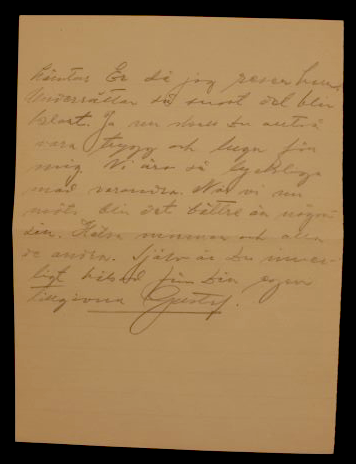 hämtar Er då jag reser hem
Underrättar så snart det blir
klart. Ja nu skall Du alltså
vara trygg och lugn för
mig. Vi äro så lyckliga
med varandra. När vi nu
möts blir det bättre än någon-
sin. Hälsa mamma och alla
de andra. Själv är Du inner-
ligt hälsad från Din egen
tillgivna Gustaf.